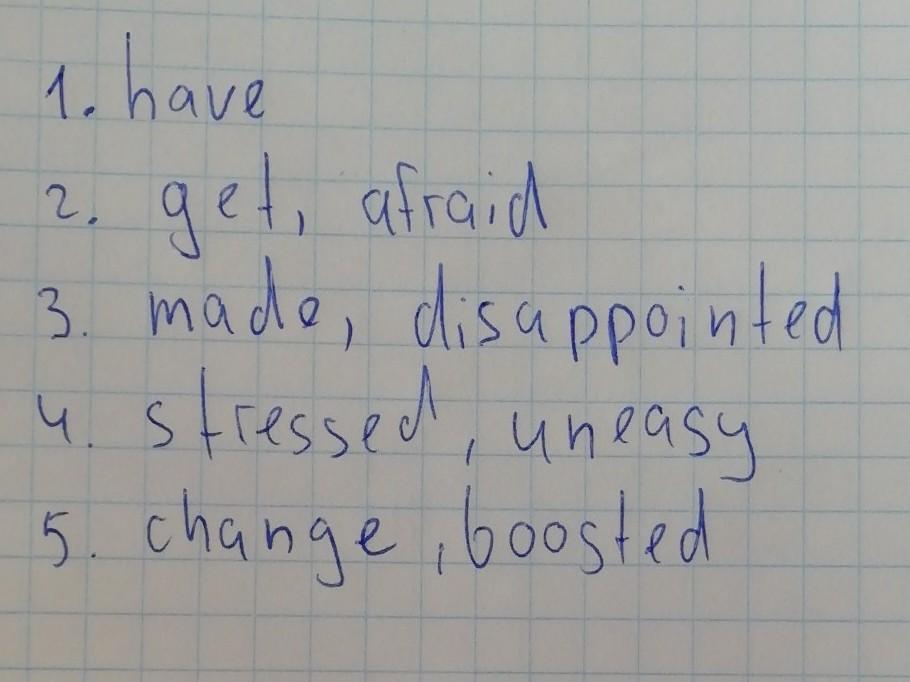 1. have
2. get, afraid
3. made, disappointed
4. stressed, uneasy
5. change, boosted